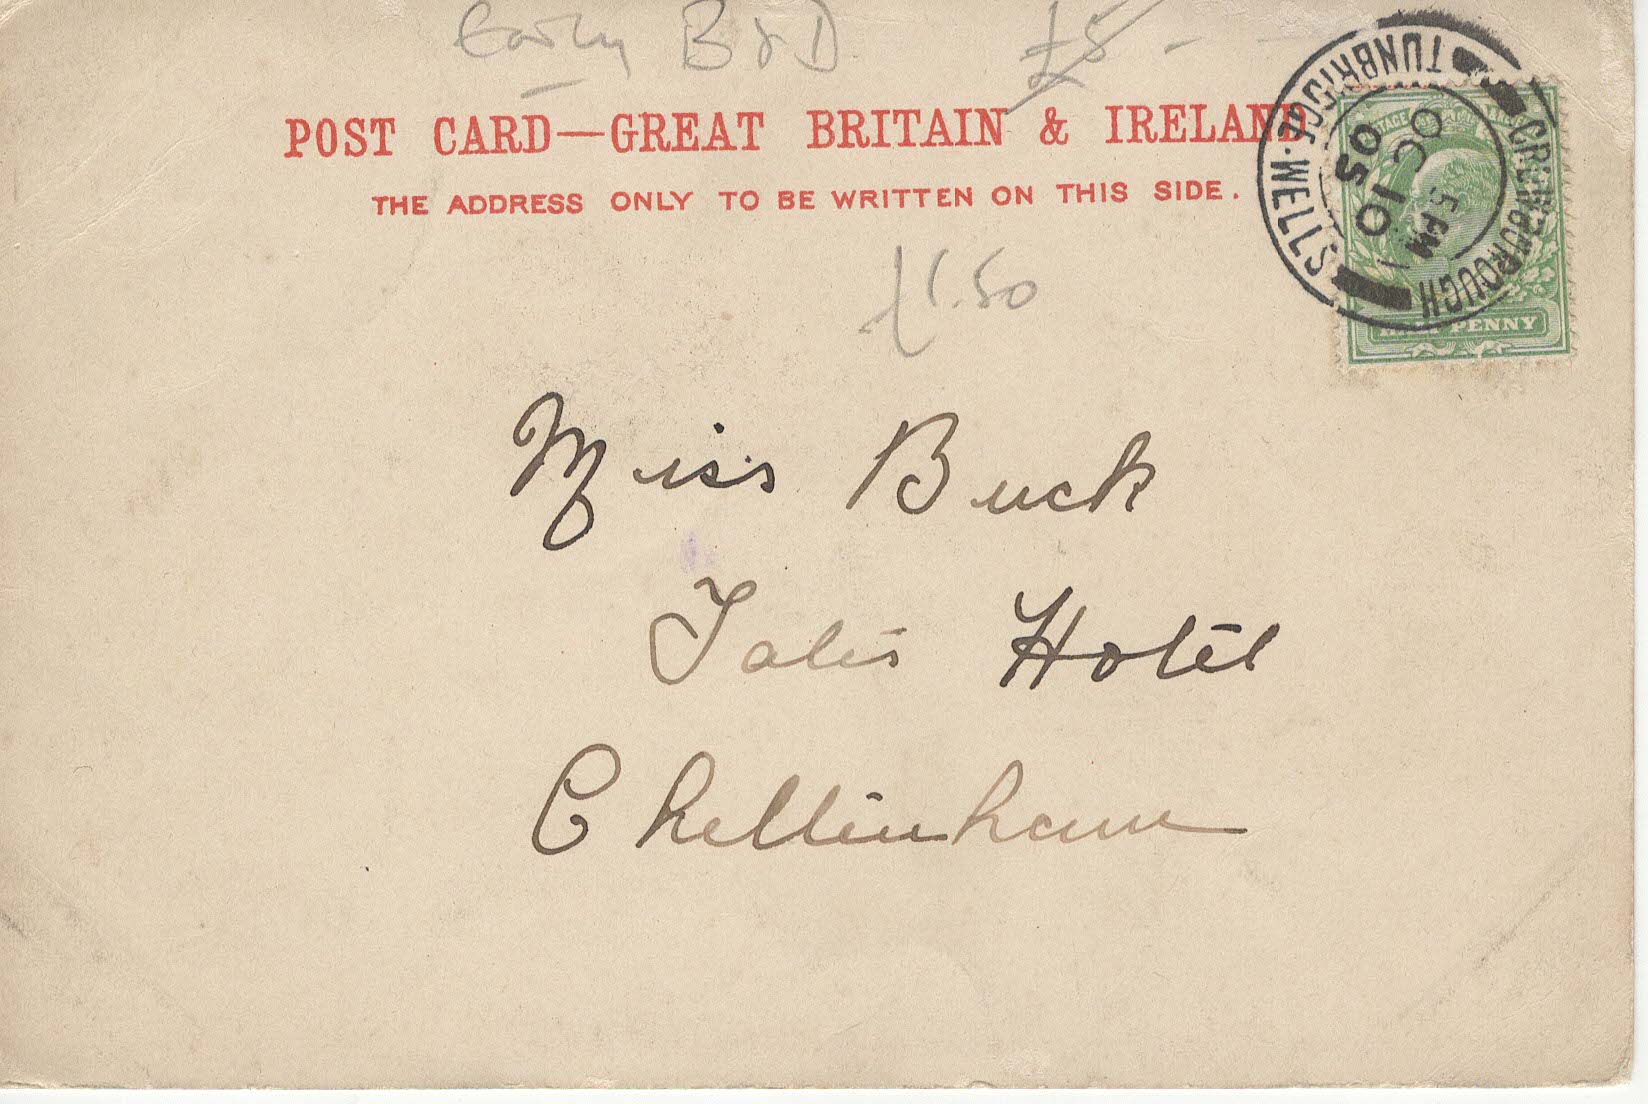 Early B & D. £5 -
POST CARD—GREAT BRITAIN & IRELAND
THE ADDRESS ONLY TO BE WRITTEN ON THIS SIDE.
GROOMBRIDGE
TUNBRIDGE·WELLS
5 PM
OC 10
05
HALF PENNY
£1.50
Miss Buck
Hotel
Cheltenham